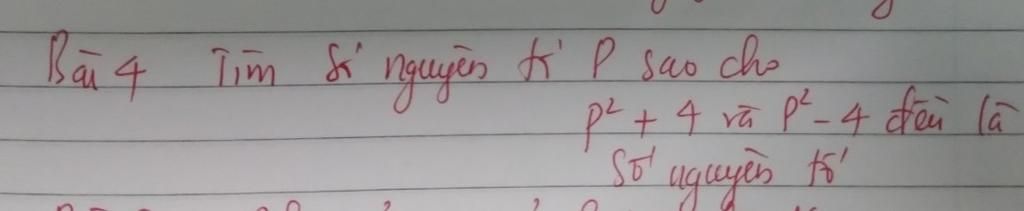 Bài 4 Tìm số nguyên tố P sao cho
P² + 4 và P² - 4 đều là
Số nguyên tố